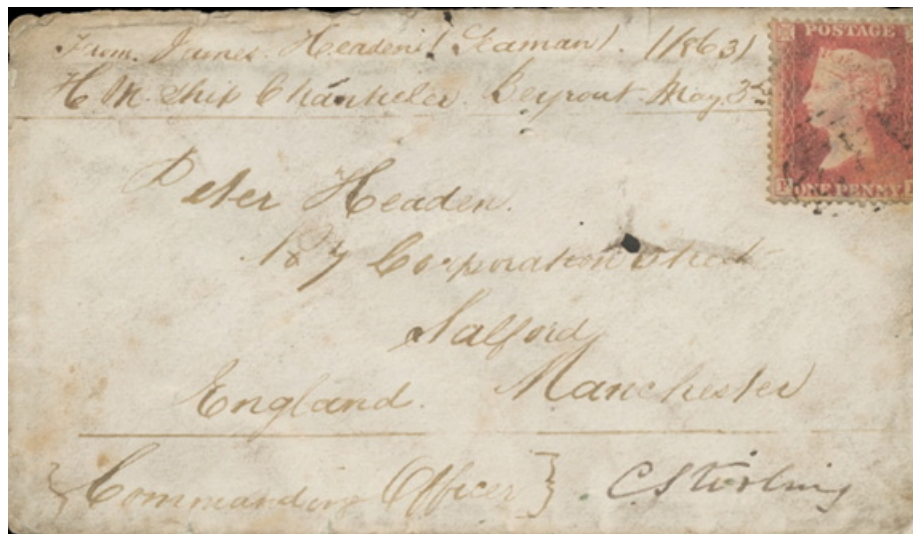 From James Headen (Seaman) (1863)
H M Ship Chankeler Beyrout May 3rd
POSTAGE
ONE PENNY
Peter Headen
No 7 Corporation Street
Salford
Manchester
England
{Commanding Officer} C Stirling